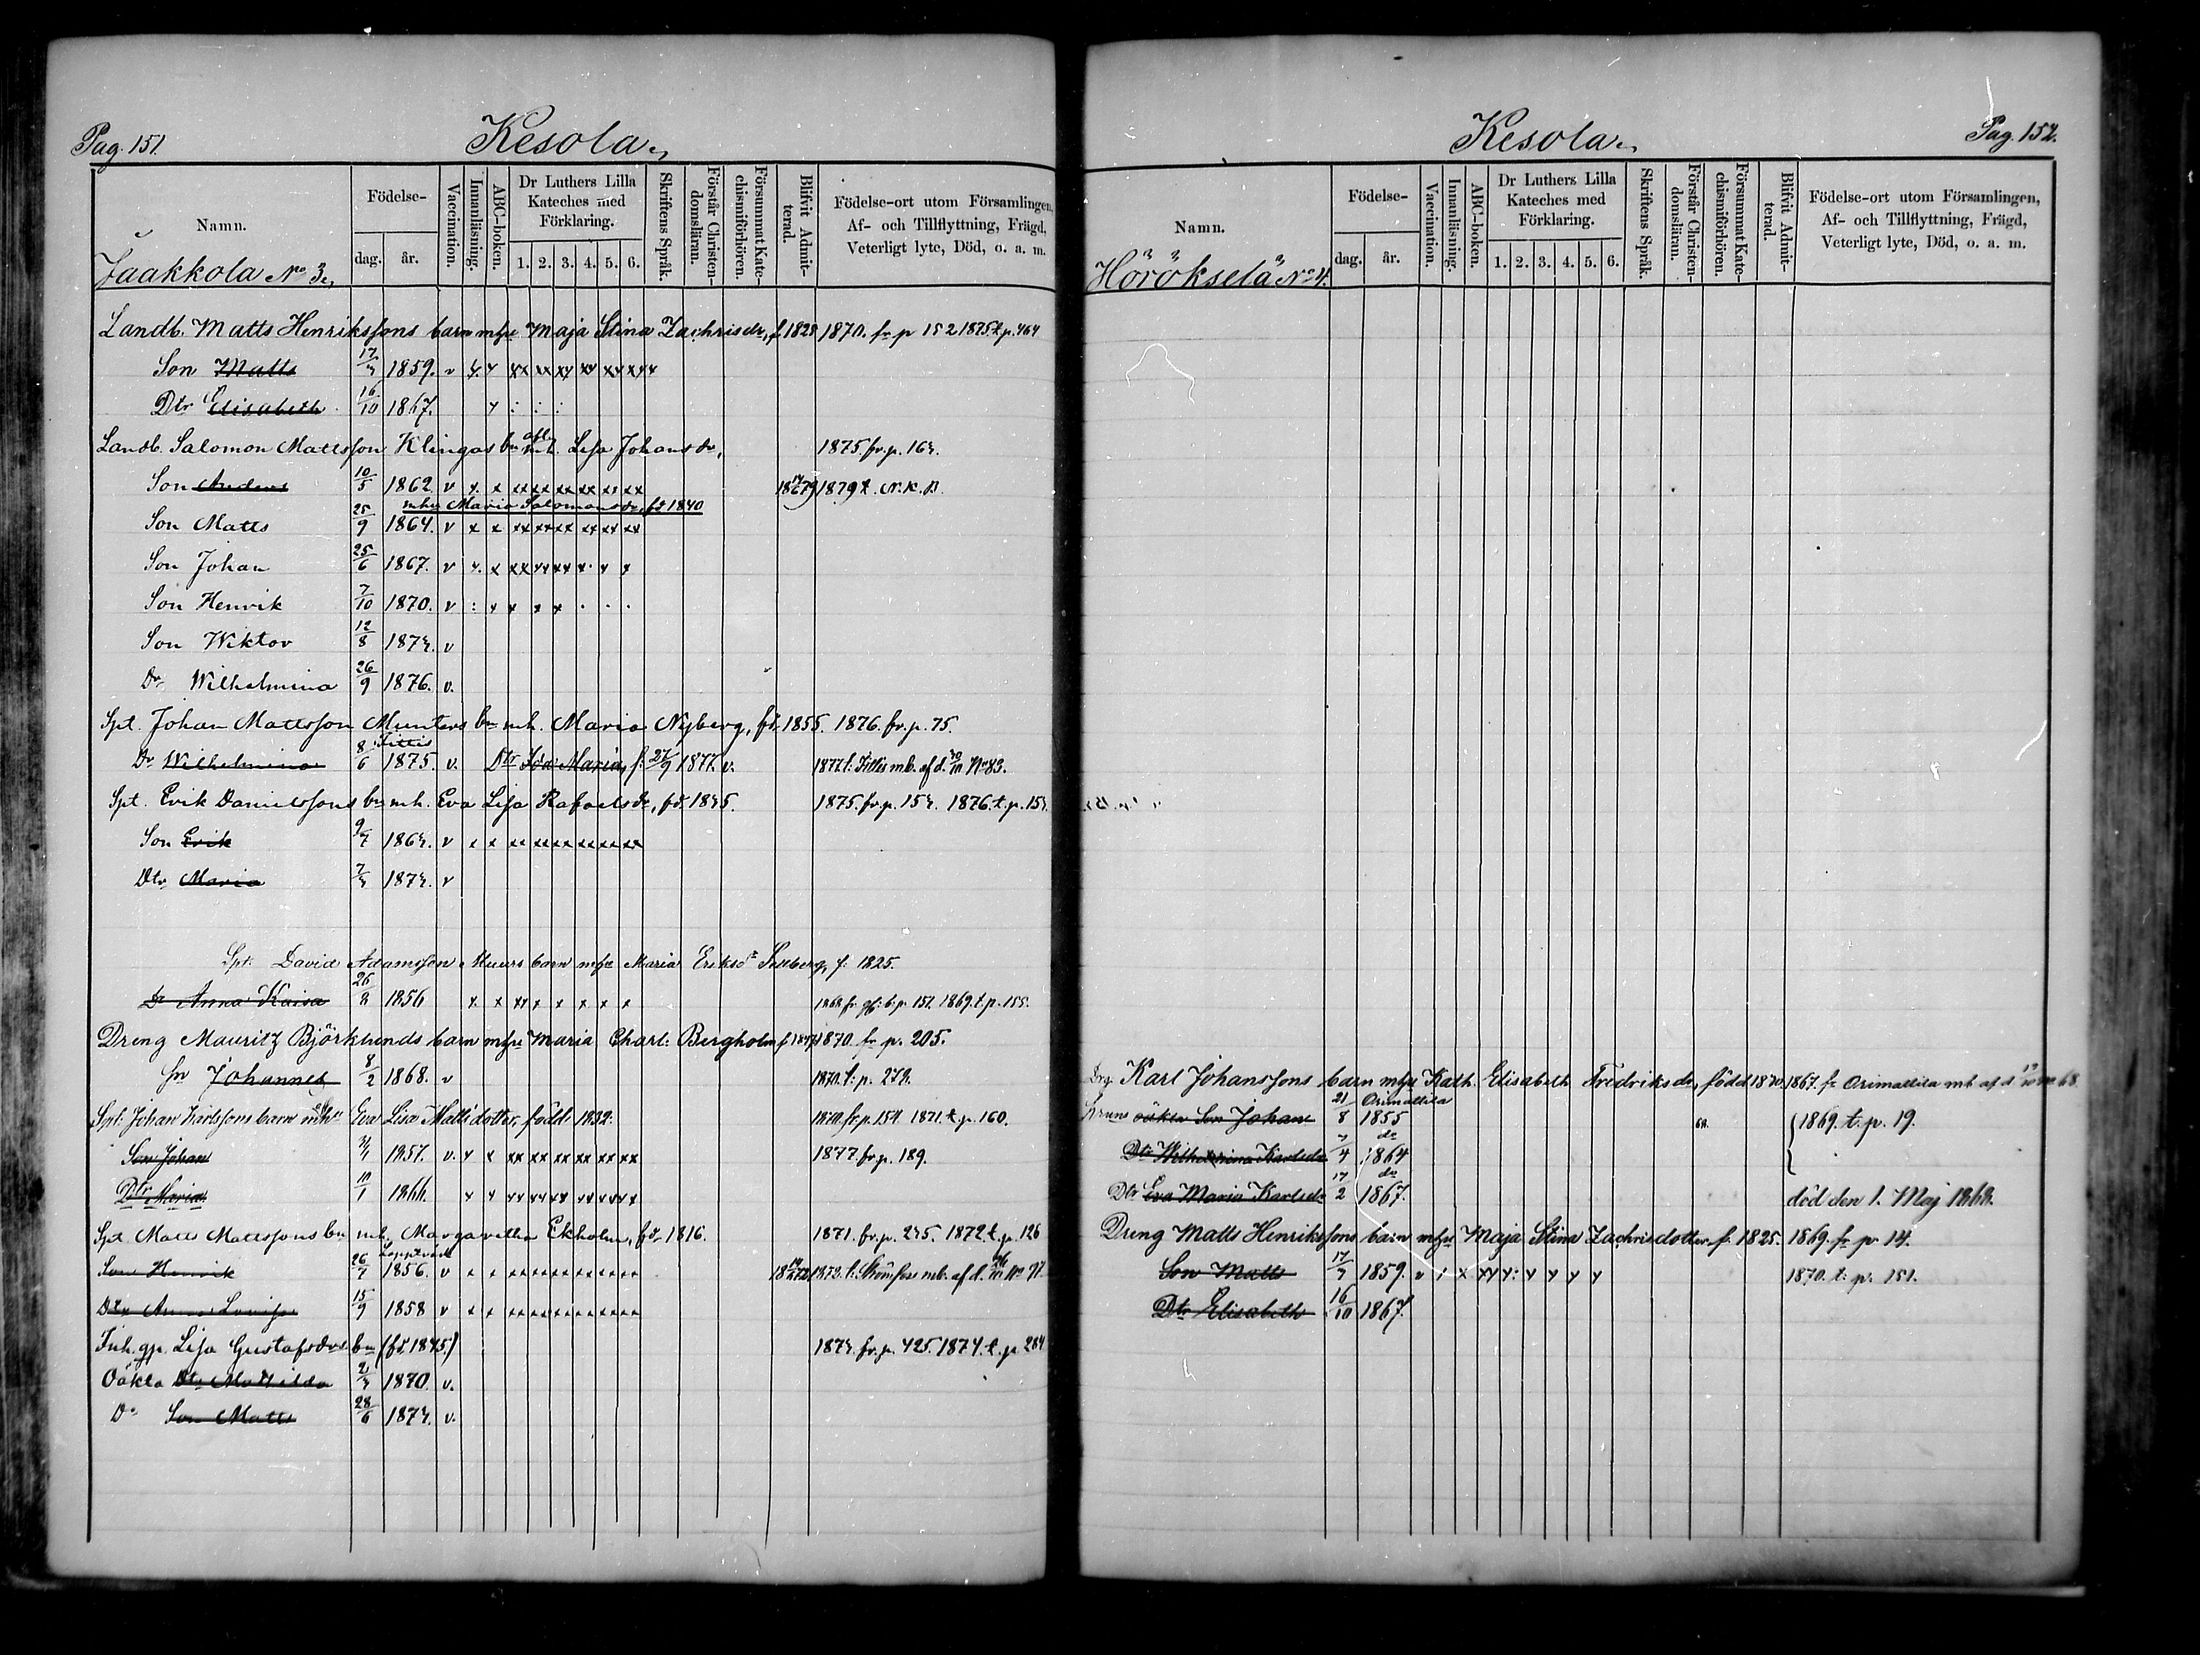 Pag. 151.
Kesola.
Namn.
Födelse-
dag.
år.
Vaccination.
Innanläsning.
ABC-boken.
Dr Luthers Lilla Kateches med Förklaring.
1. 2. 3. 4. 5. 6.
Skriftens Språk.
Förstår Christendomsläran.
Försummat Katechismiförhören.
Blifvit Admitterad.
Födelse-ort utom Församlingen,
Af- och Tillflyttning, Frägd,
Veterligt lyte, Död, o. a. m.
Jaakkola No 3.
Landb. Matts Henrikssons barn mhu Maja Stina Zachrisdr, f. 1825 1870. fr p 152 1875 t. p. 464
Son Matts 17/3 1859. v
Dtr Elisabeth 16/10 1867.
Landb. Salomon Mattsson Klingas bn afl. mh. Lisa Johansdr, 1875. fr. p. 163.
Son Anders 10/5 1862 v 1879 t. N.K.B.
mhu Maria Salomonsdr, fd 1840
Son Matts 25/9 1864. v x x xx xx xx xx xx xx
Son Johan 25/6 1867. v
Son Henrik 7/10 1870. v
Son Wiktor 12/8 1873. v
Dr Wilhelmina 26/9 1876. v.
Spt. Johan Mattsson Munters bn mh. Maria Nyberg, fd. 1855. 1876. fr. p. 75.
Dr Wilhelmina 8/6 Tittis 1875. v. Dtr Ida Maria, f. 27/9 1877. v. 1877 t. Tittis mb. af d. 30/10 No 83.
Spt. Erik Danielssons bn mh. Eva Lisa Rafaelsdr, fd. 1835. 1875. fr. p. 153. 1876. t. p. 153.
Son Erik 9/7 1863. v x x xx xx xx xx xx xx
Dtr Maria 7/3 1873. v
Spt. David Adamsson Muurs barn mhu Maria Eriksdr f. 1825.
Dr Anna Kaisa 26/8 1856 x x xx x x x x x 1869. t. p. 155.
Dreng Mauritz Björklunds barn mhu Maria Charl: Bergholm f. 1847 1870 fr p. 205.
Sn Johannes 8/2 1868. v 1870. t: p. 278.
Spt. Johan Karlssons barn mhu Eva Lisa Matts dotter, född 1832. fr. p. 154 1871. t. p. 160.
Son Johan 1857. v. x x xx xx xx xx xx xx 1877. fr. p. 189.
Dtr Maria 10/1 1866.
Spt. Matts Mattssons bn mh. Margaretha Ekholm, fd. 1816. 1871. fr. p. 235. 1872 t. p. 126
Son Henrik 26/7 1856. v 1873. t. Strömfors mb. af d.
Dtr Anna Lovisa 15/9 1858 v
Inh. gp. Lisa Gustafsdrs bn (fd. 1845.) 1873. fr. p. 425. 1874. t. p. 284
Oäkta Dtr Mathilda 2/3 1870. v.
Do Son Matts 28/6 1873. v.
Kesola.
Pag. 152.
Namn.
Födelse-
dag.
år.
Vaccination.
Innanläsning.
ABC-boken.
Dr Luthers Lilla Kateches med Förklaring.
1. 2. 3. 4. 5. 6.
Skriftens Språk.
Förstår Christendomsläran.
Försummat Katechismiförhören.
Blifvit Admitterad.
Födelse-ort utom Församlingen,
Af- och Tillflyttning, Frägd,
Veterligt lyte, Död, o. a. m.
Hörökselä No 4.
Drg. Karl Johanssons barn mhu Kath. Elisabeth Fredriksdr, född 1830. 1867. fr Orimattila mb af d
oäkta Son Johan 21/8 Orimattila 1855 68. 1869. t. p. 19.
Dtr Wilhelmina Karlsdr do 1864
Dtr Eva Maria Karlsdr 17/2 do 1867. död den 1. Maj 1868.
Dreng Matts Henrikssons barn mhu Maja Stina Zachrisdotter f. 1825. 1869. fr p. 14.
Son Matts 17/3 1859. v 1870. t: p. 151.
Dtr Elisabeth 16/10 1867.